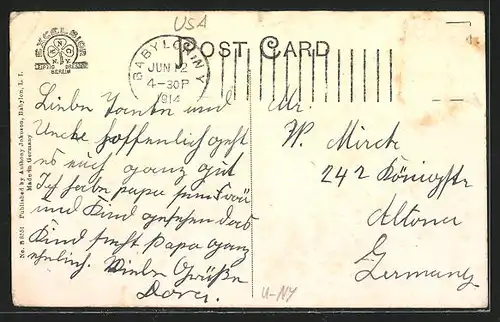 USA
EXCELSIOR
N.Y.
LEIPZIG DRESDEN
BERLIN
BABYLON N.Y.
JUN 12
4-30P
1914
POST CARD
No. R 8351 Published by Anthony Johnson, Babylon, L. I.
Made in Germany
Lieber Tante und
Uncle hoffentlich geht
es euch ganz gut
Ich habe papa sein Frau
und Kind gesehen das
Kind sieht Papa ganz
ehnlich. Vielen Grüße
Dora.
Mr.
W. Mirck
242 Königstr
Altona
Germany
U-NY